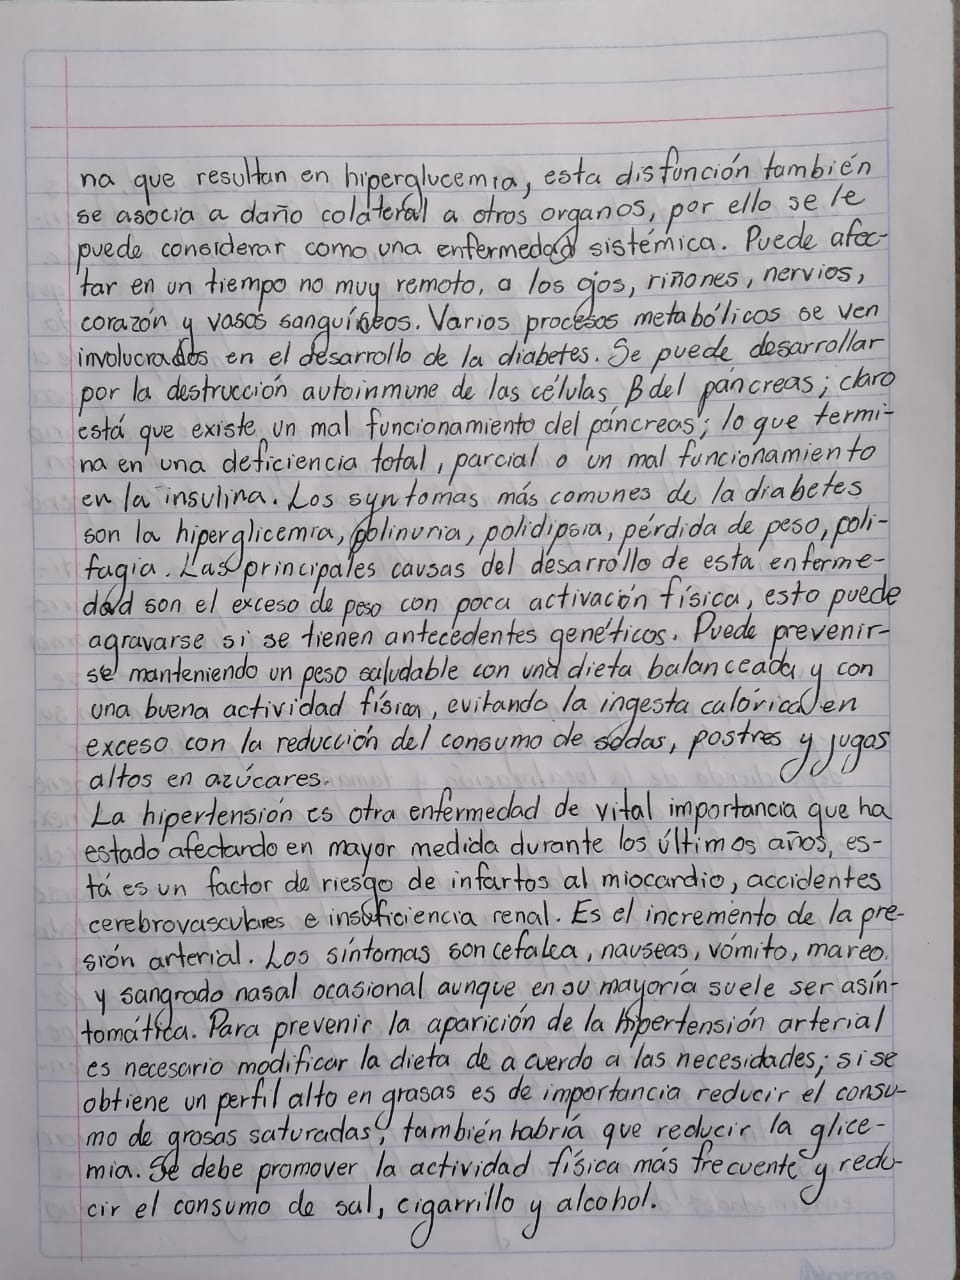 na que resultan en hiperglucemia, esta disfunción también
se asocia a daño colateral a otros organos, por ello se le
puede considerar como una enfermedad sistémica. Puede afec-
tar en un tiempo no muy remoto, a los ojos, riñones, nervios,
corazón y vasos sanguíneos. Varios procesos metabólicos se ven
involucrados en el desarrollo de la diabetes. Se puede desarrollar
por la destrucción autoinmune de las células β del páncreas; claro
está que existe un mal funcionamiento del páncreas; lo que termi-
na en una deficiencia total, parcial o un mal funcionamiento
en la insulina. Los syntomas más comunes de la diabetes
son la hiperglicemia, polinuria, polidipsia, pérdida de peso, poli-
fagia. Las principales causas del desarrollo de esta enferme-
dad son el exceso de peso con poca activación física, esto puede
agravarse si se tienen antecedentes genéticos. Puede prevenir-
se manteniendo un peso saludable con una dieta balanceada y con
una buena actividad física, evitando la ingesta calórica en
exceso con la reducción del consumo de sodas, postres y jugas
altos en azúcares.
La hipertensión es otra enfermedad de vital importancia que ha
estado afectando en mayor medida durante los últimos años, es-
tá es un factor de riesgo de infartos al miocardio, accidentes
cerebrovasculares e insuficiencia renal. Es el incremento de la pre-
sión arterial. Los síntomas son cefalea, nauseas, vómito, mareo
y sangrado nasal ocasional aunque en su mayoría suele ser asín-
tomática. Para prevenir la aparición de la hipertensión arterial
es necesario modificar la dieta de a cuerdo a las necesidades; si se
obtiene un perfil alto en grasas es de importancia reducir el consu-
mo de grasas saturadas, también habría que reducir la glice-
mia. Se debe promover la actividad física más frecuente y redu-
cir el consumo de sal, cigarrillo y alcohol.
Norma